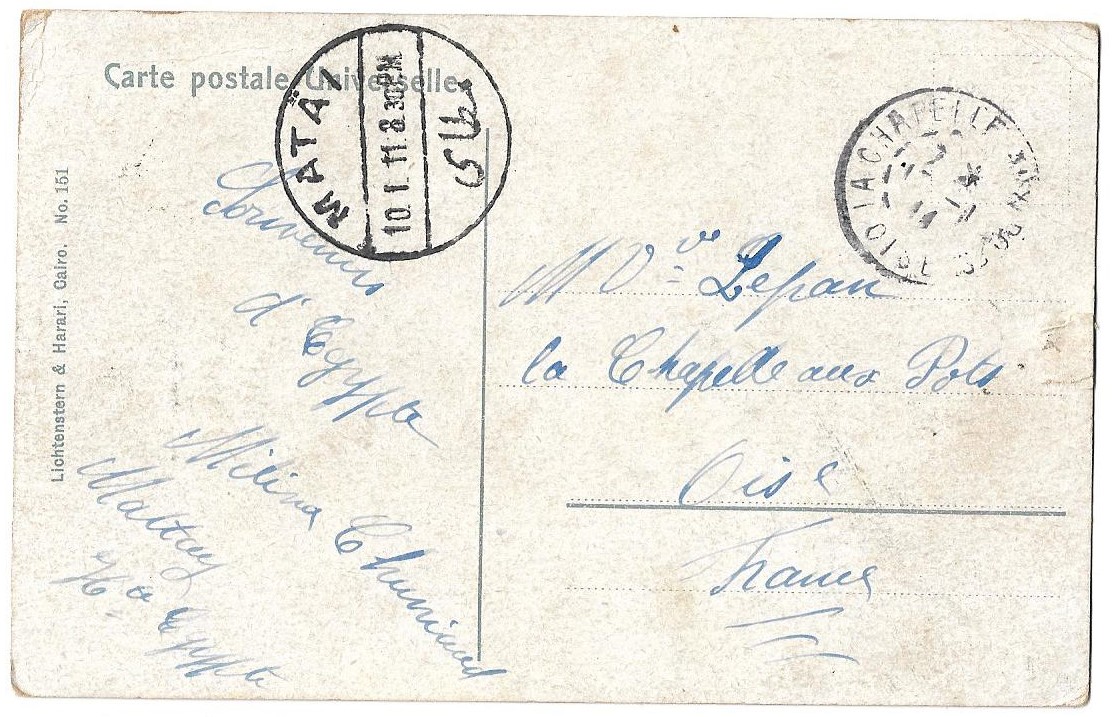 Carte postale Universelle
MATÂI
10.I.11.8.30PM
مطاى
LA CHAPELLE AUX POTS
OISE
Lichtenstern & Harari, Cairo. No. 151
Souvenir
d'Egypte
Milina
Mattay
Hte Egypte
M Vve Lepan
la Chapelle aux Pots
Oise
France